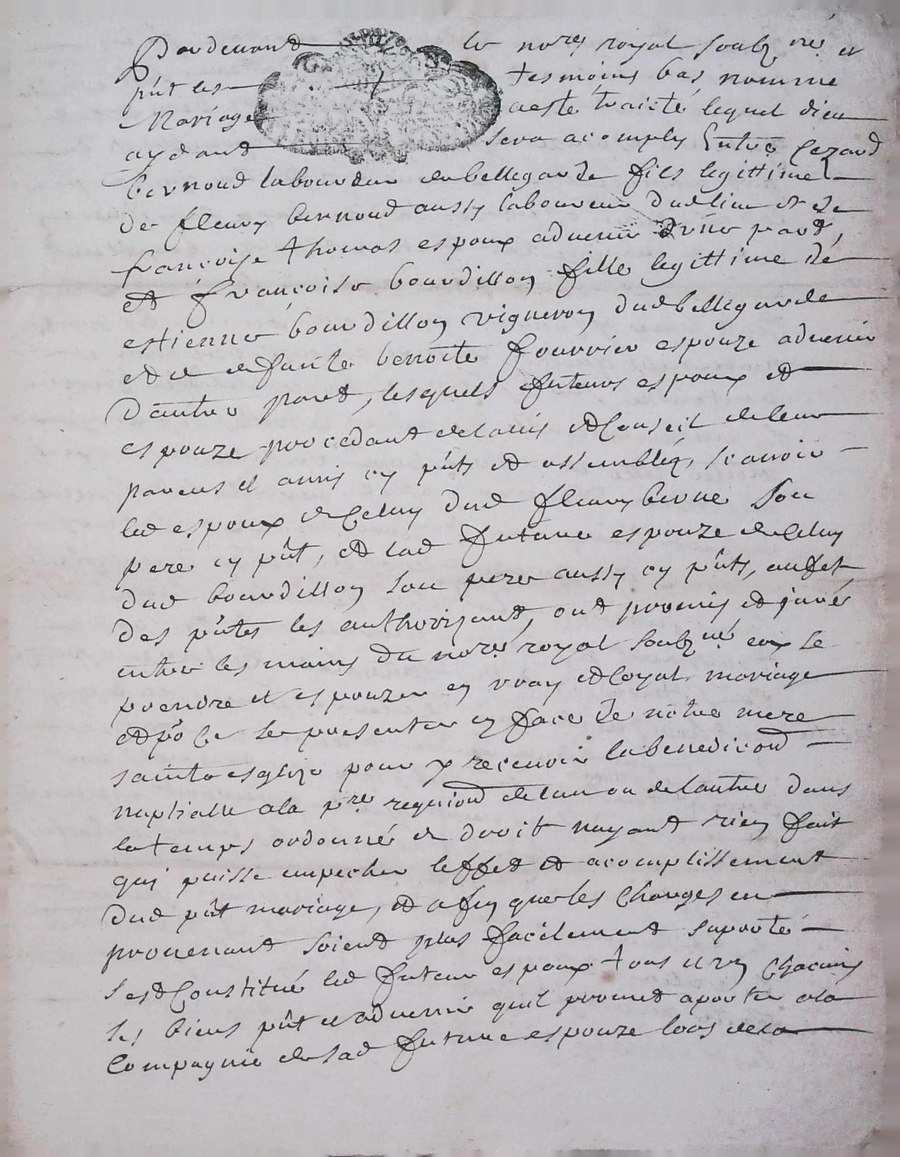 Pardevant le no.re royal soubz.né et
p'nt les tesmoins bas nommé
Mariage a esté traicté lequel dieu
aydant sera acomply Entre Cezard
bernoud laboureur de bellegarde fils legittime
de fleury bernoud aussy laboureur dud lieu et de
françoise thomas espoux advenir d'une part,
et françoise bourdillon fille legittime de
estienne bourdillon vigneron dud bellegarde
et de defunte benoite fournier espouze advenir
d'autre part, lesquels futeurs espoux et
espouze procedant de l'advis et Conseil de leur
parens et amis cy p'nts et assemblés, scavoir
led espoux de Celuy dud fleury berne son
pere cy p'nt, et lad future espouze de Celuy
dud bourdillon son pere aussy cy p'nts, au fet
des p'ntes les authorizant, ont promis et juré
entre les mains du no.re royal soubz.né eux se
prendre et espouzer en vray et loyal mariage
et po ce se presenter en face de notre mere
sainte esglize pour y recevoir la benediond
nuptialle a la p.re requiond de l'un ou de l'autre dans
le temps ordonné de droit nayant rien fait
qui puisse empecher leffet et acomplissement
dud p'nt mariage, et afin que les Charges en
provenant soient plus facilement suporté
s'est Constitué led futeur espoux tous et un chacuns
ses biens p'nt et advenir quil promet aporter a la
Compagnie de sad future espouze lors de la